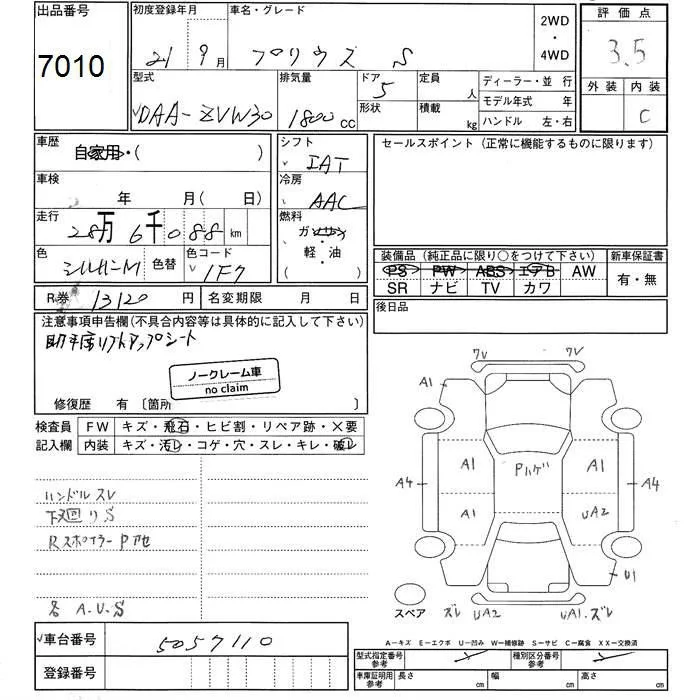 出品番号
7010
初度登録年月
21 9月
車名・グレード
プリウス S
2WD
・
4WD
評価点
3.5
外装 内装
C
型式
DAA-ZVW30
排気量
1800cc
ドア
5
形状
定員
人
積載
kg
ディーラー・並行
モデル年式 年
ハンドル 左・右
車歴
自家用・( )
車検
年 月( 日)
走行
28万6千088km
色
シルバーM
色替
色コード
1F7
シフト
IAT
冷房
AAC
燃料
ガソリン
軽・油
セールスポイント(正常に機能するものに限ります)
装備品(純正品に限り○をつけて下さい)
PS PW ABS エアB AW
SR ナビ TV カワ
新車保証書
有・無
R券 13120円
名変期限 月 日
後日品
注意事項申告欄(不具合内容等は具体的に記入して下さい)
助手席リフトアップシート
ノークレーム車
no claim
修復歴 有〔箇所 〕
検査員
記入欄
FW キズ・飛石・ヒビ割・リペア跡・X要
内装 キズ・汚レ・コゲ・穴・スレ・キレ・破レ
ハンドルスレ
下回りS
RスポイラーPアセ
各A.U.S
7V 7V
A1
A1 Pハゲ A1
A4 A4
A1 UA2
U1
スペア
ズレ UA2 UA1.ズレ
A-キズ E-エクボ U-凹み W-補修跡 S-サビ C-腐食 XX-交換済
車台番号
5057110
登録番号
型式指定番号
参考
種別区分番号
参考
車庫証明用
参考
長さ cm
幅 cm
高さ cm